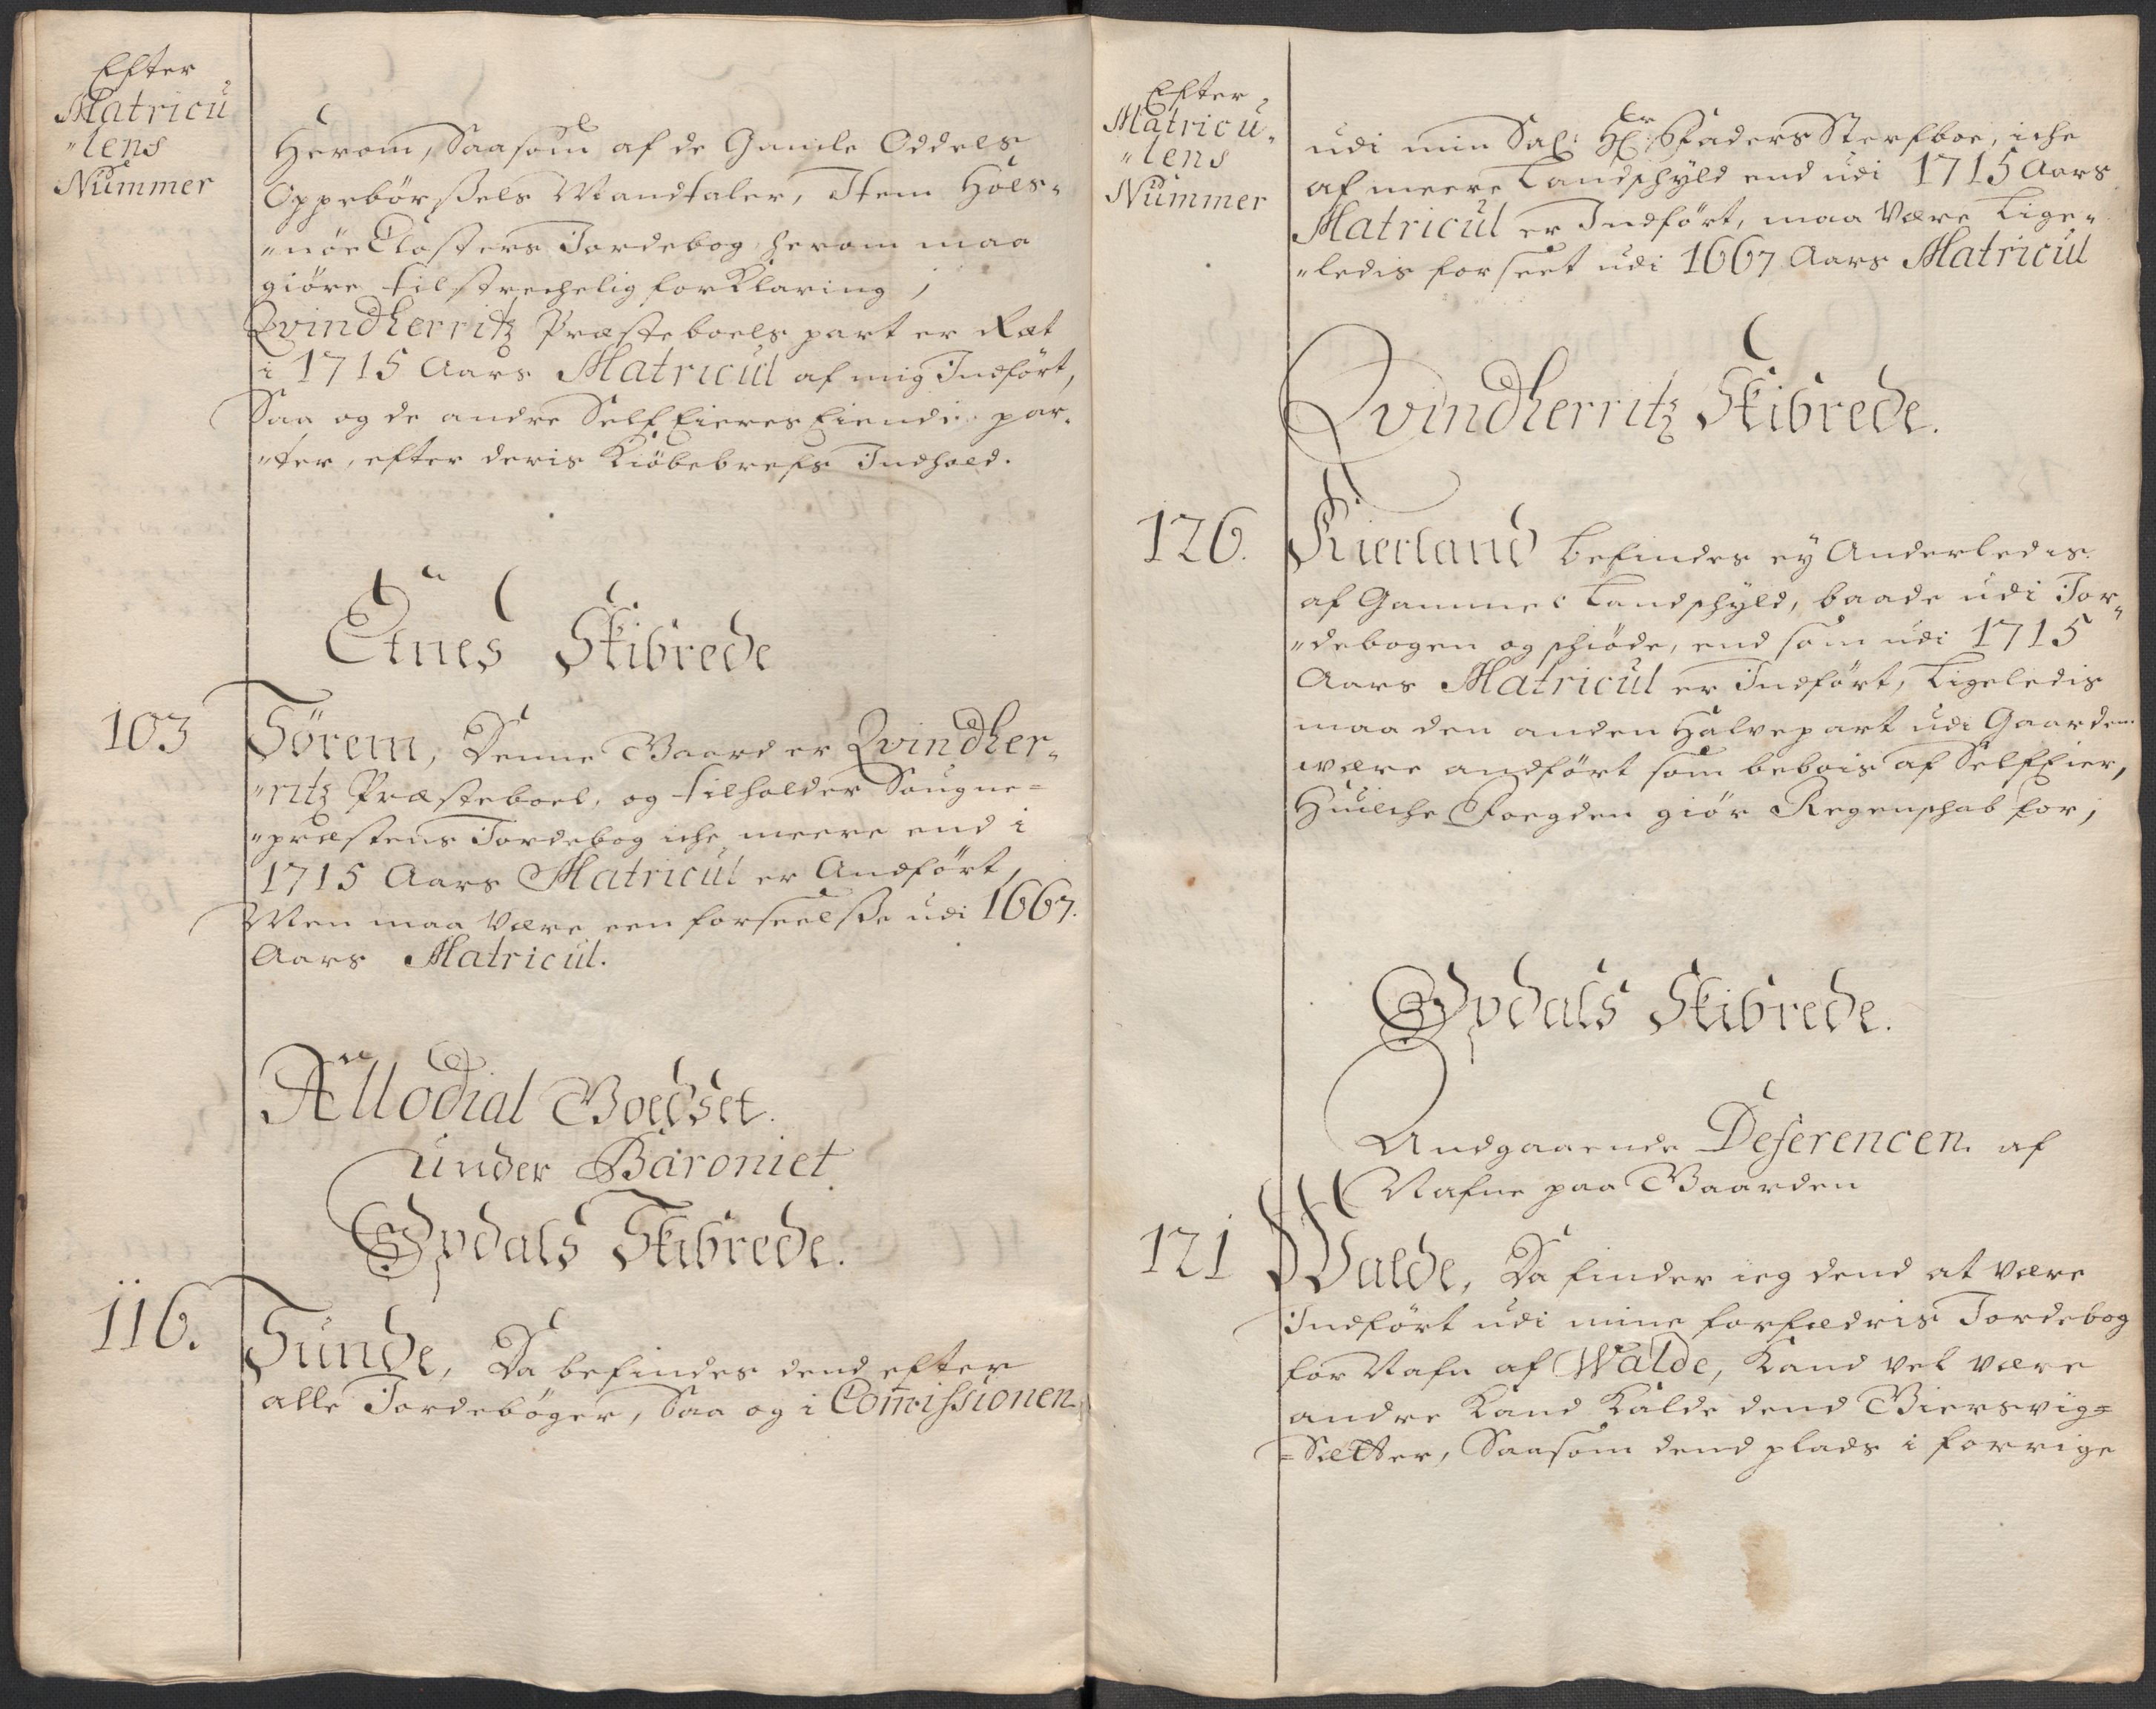 Efter
Matricu
"lens
Nummer
Herom, Saasom af de Gamle Oddels
Oppebörßels Mandtaler, Item Hols-
"nöe Closters Jordebog herom maa
giöre tilstrechelig forKlaring;
Qvindherritz Præsteboels part er Ræt
i 1715 Aars Matricul af mig Indfört,
Saa og de andre SelfEieres Eiende par-
"ter, efter deris Kiöbebrefs Indhold.
Etnes Skibrede
103 Törem, Denne Gaard er Qvindher-
"ritz Præsteboel, og tilholder Sougne=
"præstens Jordebog iche meere end i
1715 Aars Matricul er Andfört,
Men maa Være een forseelße udi 1667.
Aars Matricul.
Allodial Goedset
under Baroniet
Opdals Skibrede.
116. Tunde, Da befindes dend efter
alle Jordebøger, Saa og i Commissionen
Efter
Matricu-
"lens
Nummer
udi min Sal: Hr: Faders Sterfboe, iche
af meere Landschyld end udi 1715 Aars
Matricul er Indfört, maa Være Lige-
"ledis forseet udi 1667 Aars Matricul
Qvindherritz Skibrede.
126. Kierland befindes ey Anderledis
af Gammel Landschyld, baade udi Jor-
"debogen og schiöde, end som udi 1715
Aars Matricul er Indfört, Ligeledis
maa den anden Halvepart udi Gaarden
være andfört som bebois af SelfEier,
Huilche Foegden giör Regenschab for;
Opdals Skibrede.
Andgaaende Deferencen af
Nafne paa Gaarden
121 Walde, Da finder ieg dend at være
Indfört udi mine forfædris Jordebog
for Nafn af Walde, Kand vel være
andre Kand Kalde dend Giersvig=
=Sætter, Saasom dend plads i forrige